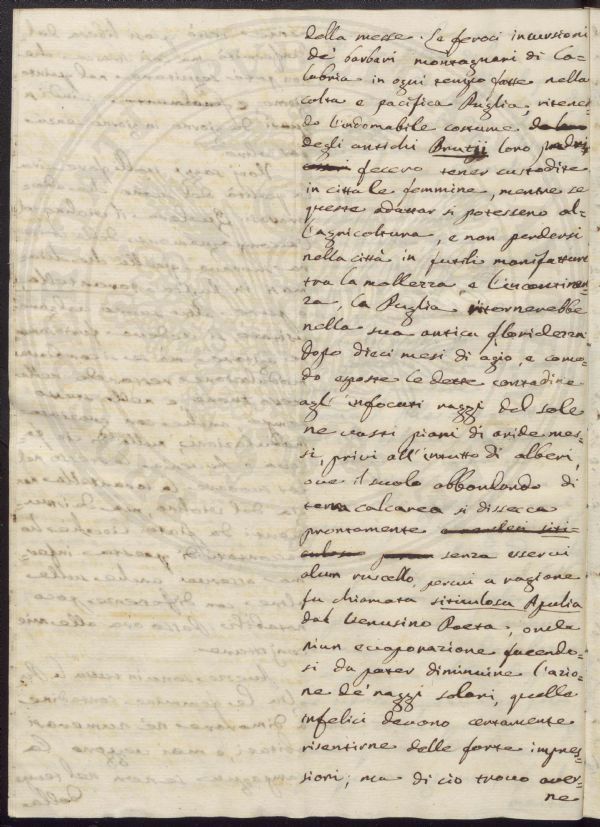 della messe. Le feroci incursioni
de' barbari montagnari di Ca=
labria in ogni tempo fatte nella
colta e pacifica Puglia, ritenen=
do l'indomabile costume
degli antichi Bruttj loro padri
fecero tener custodite
in città le femmine, mentre se
queste adattar si potesseno al=
l'agricoltura, e non perdersi
nella città in futili manifatture
tra la mollezza e l'incontinen=
za, la Puglia ritornerebbe
nella sua antica floridezza:
dopo dieci mesi di agio, e como=
do esposte le dette contadine
agl' infocati raggi del sole
ne vasti piani di aride mes=
si, privi all'intutto di alberi,
ove il suolo abbondando di
terra calcarea si dissecca
prontemente
senza esservi
alcun ruscello, percui a ragione
fu chiamata siticulosa Apulia
dal Venusino Poeta, onde
niun evaporazione facendo=
si da poter diminuire l'azio=
ne de' raggi solari, quelle
infelici devono certamente
risentirne delle forte impres=
sioni; ma di ciò trovo aver=
ne